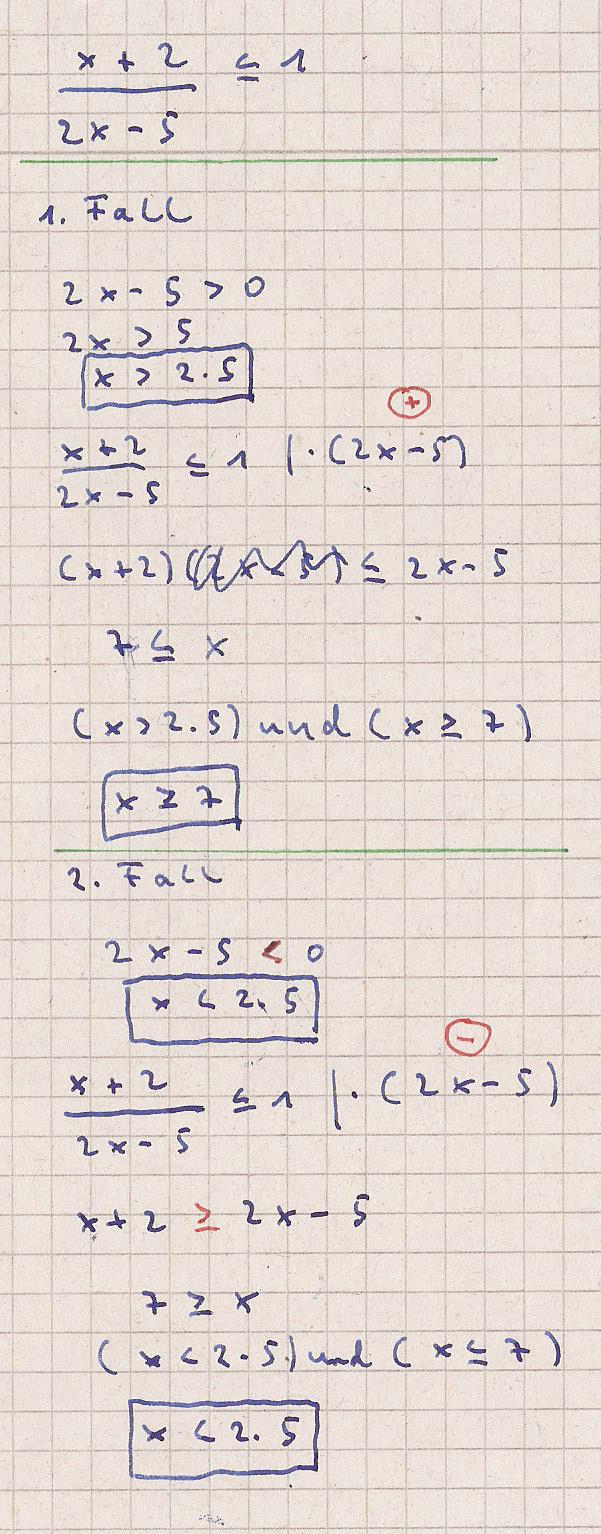 x + 2 ≤ 1
2x - 5
1. Fall
2x - 5 > 0
2x > 5
x > 2.5
+
x+2 ≤ 1 | · (2x-5)
2x - 5
(x+2) ≤ 2x - 5
7 ≤ x
(x > 2.5) und (x ≥ 7)
x ≥ 7
2. Fall
2x - 5 < 0
x < 2.5
-
x + 2 ≤ 1 | · (2x - 5)
2x - 5
x + 2 ≥ 2x - 5
7 ≥ x
(x < 2.5) und (x ≤ 7)
x < 2.5